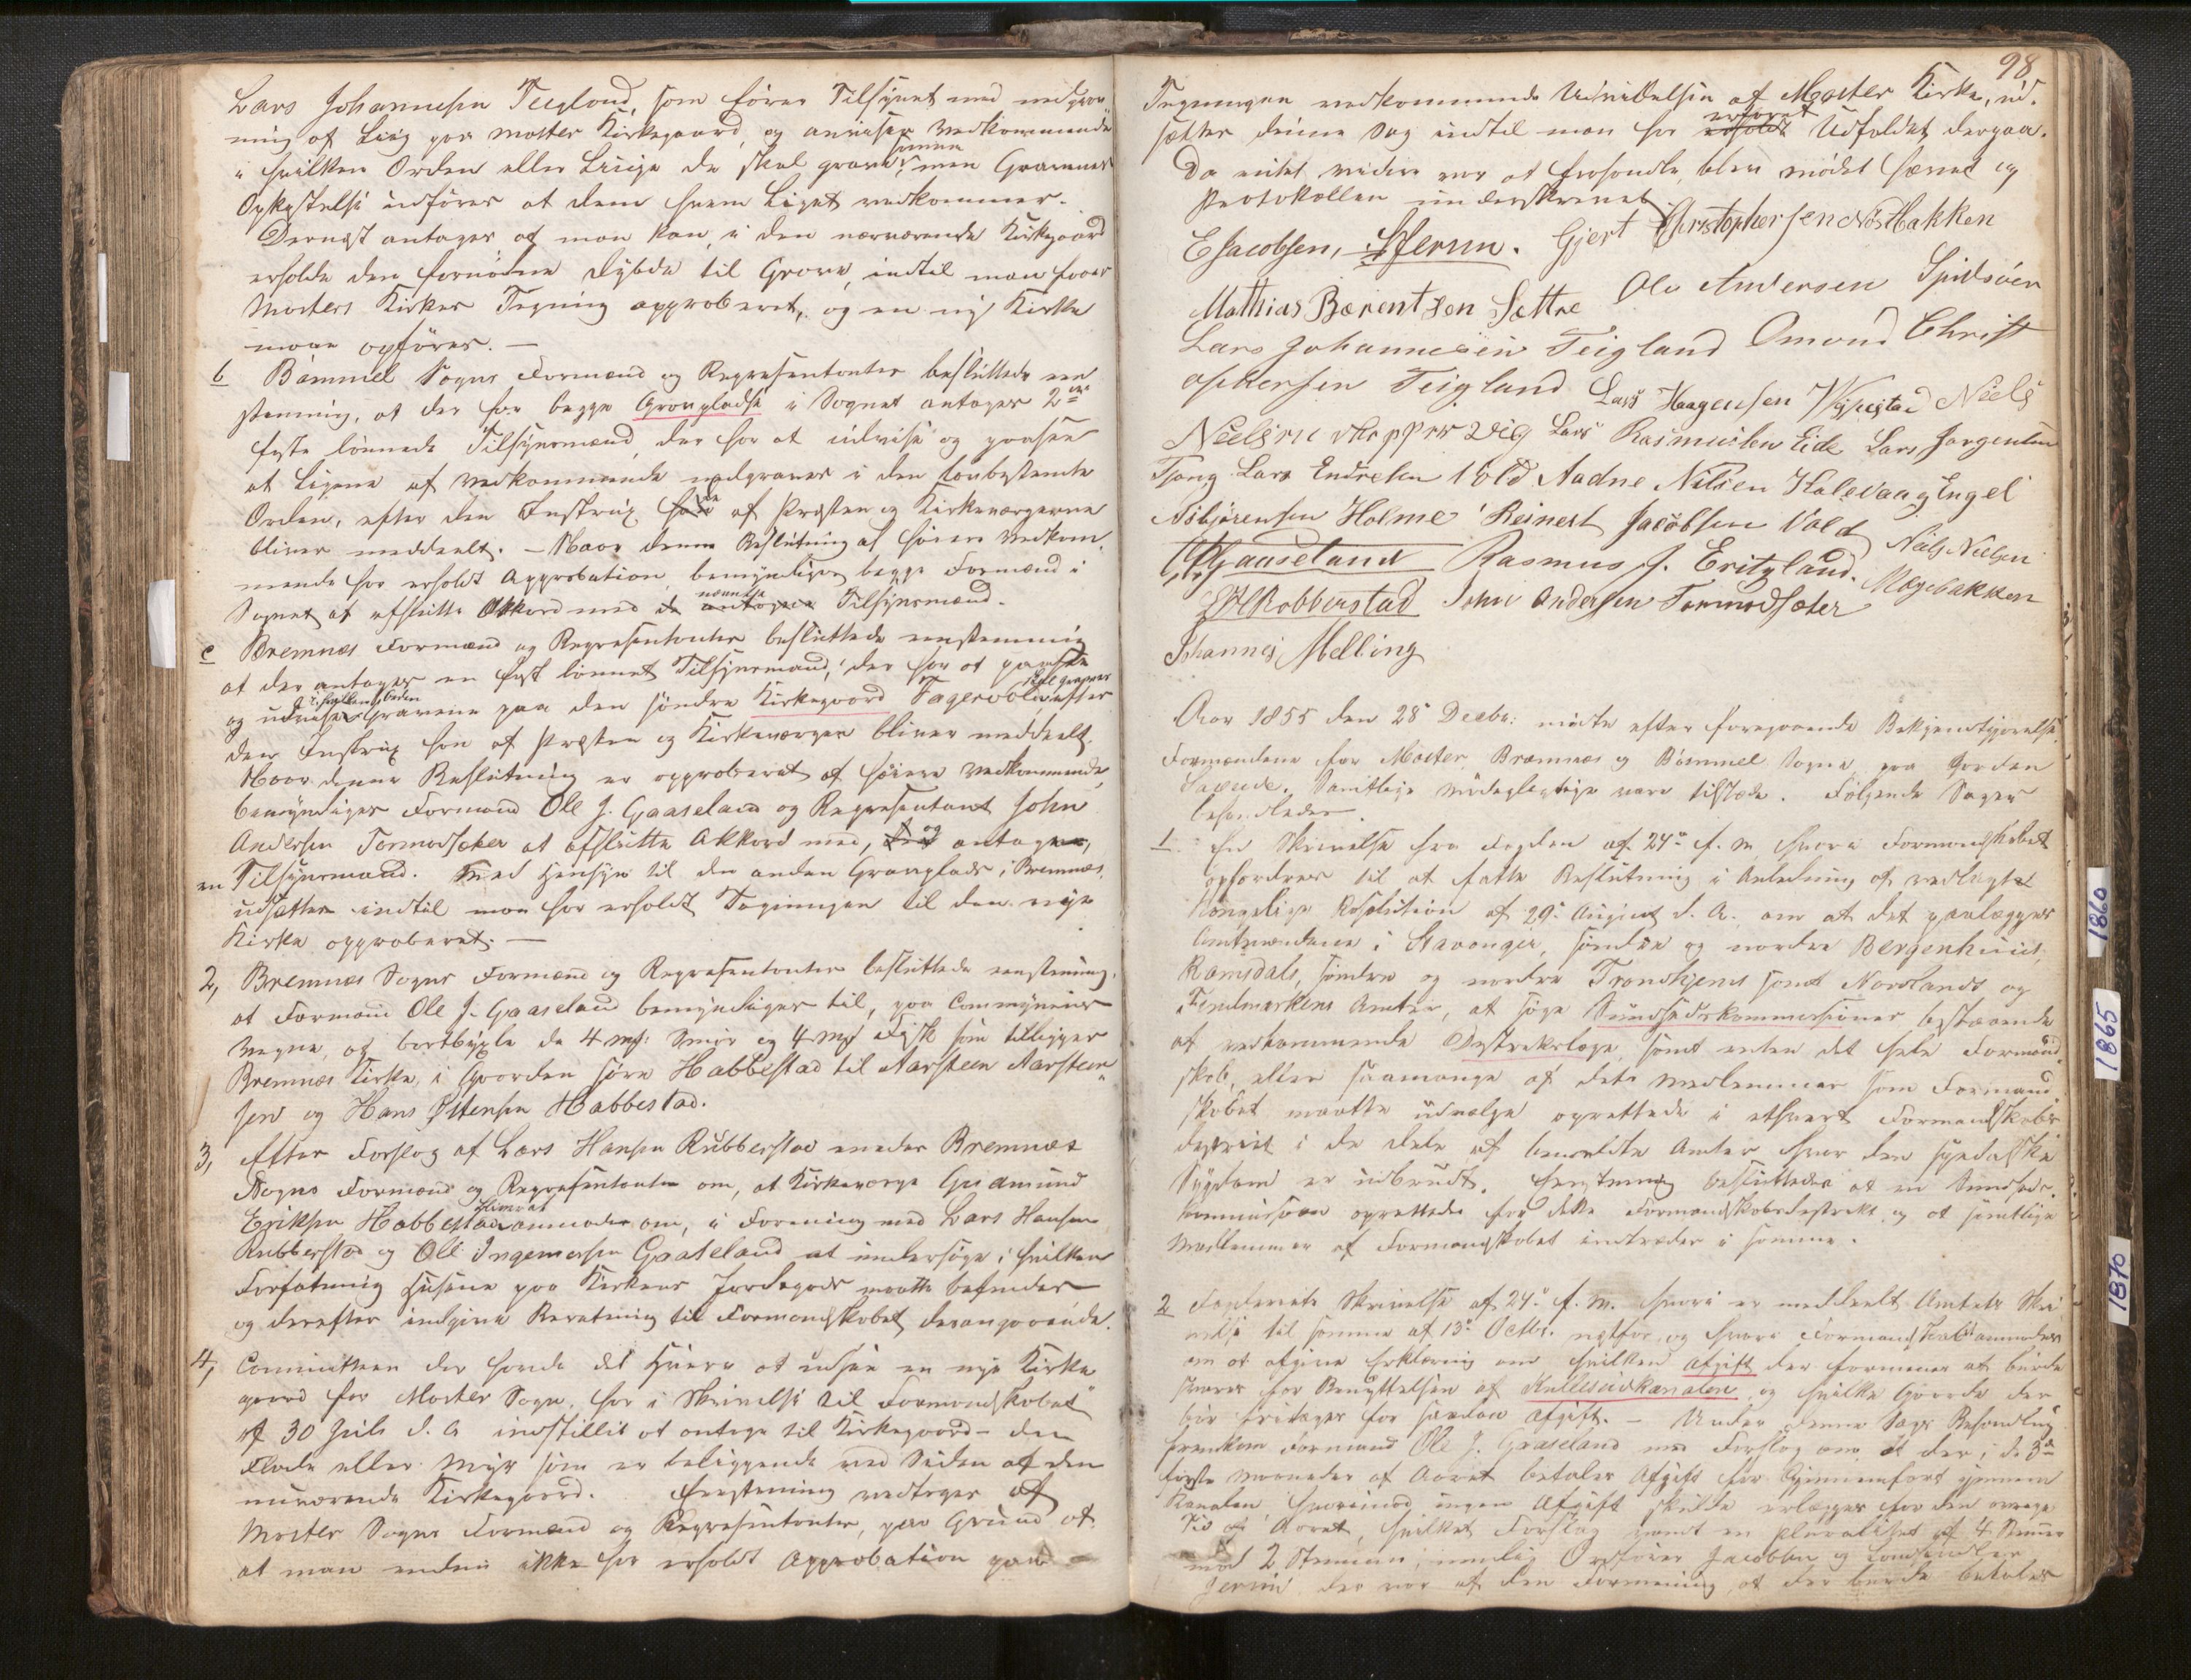 Lars Johannesen Teigland, som fører Tilsynet med nedgrav-
ning af Liig paa Moster Kirkegaard, og anviser Vedkommende
i hvilken Orden eller Linje de skal grave; men Gravenes
samme
Opkastelse udføres af dem hvem Liget vedkommer.
Dernæst antages at man kan i den nærværende Kirkegaard
erholde den fornødne Dybde til Grave, indtil man faaer
Mosters Kirkes Tegning approberet, og en ny Kirke
maae opføres. —
b Bømmel Sogns Formænd og Repræsentanter besluttede een-
stemmig, at der for begge Gravpladse i Sognet antages 2de
faste lønnede Tilsynsmænd, der har at udvise og paasee
at Ligene af Vedkommende nedgraves i den lovbestemte
Orden, efter den Instrux de af Præsten og Kirkeværgerne
bliver meddeelt. — Naar denne Beslutning af høiere Vedkom-
mende har erholdt Approbation, bemyndiges begge Formænd i
nævnte
Sognet at afslutte Akkord med de antagne Tilsynsmænd.
c Bremnes Formænd og Repræsentanter besluttede eenstemmig
at der antages en fast lønnet Tilsynsmand, der har at paasee
og i hvilken Orden skal graves
og udvise Gravene paa den søndre Kirkegaard Fagervold efter
den Instrux han af Præsten og Kirkeværgen bliver meddeelt.
Naar denne Beslutning er approberet af høiere Vedkommende,
bemyndiges Formand Ole J. Gaaseland og Repræsentant John
Andersen Tormodsæter at afslutte Akkord med, og antage
en Tilsynsmand. Med Hensyn til den anden Gravplads i Bremnes,
udsættes indtil man har erholdt Tegningen til den nye
Kirke approberet. —
2, Bremnes Sogns Formænd og Repræsentanter besluttede eenstemmig,
at Formand Ole J. Gaaseland bemyndiges til, paa Communens
Vegne, at bortbygle de 4 Smør og 4 Fisk som tilligger
Bremnes Kirke, i Gaarden søre Habbestad til Aarsteen Aarsteen-
sen og Hans Østensen Habbestad.
3, Efter Forslag af Lars Hansen Rubberstad eenedes Bremnes
Sogns Formænd og Repræsentanter om, at Kirkeværge Gudmund
Eriksen Habbestad anmodes om, i Forening med Lars Hansen
Rubberstad og Ole Ingemarsen Gaaseland at undersøge i hvilken
Forfatning Husene paa Kirkens Jordegods maatte befindes
og derefter indgive Beretning til Formandskabet desangaaende.
4, Committeen der havde det Hverv at udsee en nye Kirke-
gaard for Moster Sogn, har i Skrivelse til Formandskabet
af 30 Juli d. A. indstillet at antage til Kirkegaard den
Flade eller Myr som er beliggende ved Siden af den
nuværende Kirkegaard. Eenstemmig vedtages af
Moster Sogns Formænd og Repræsentanter, paa Grund af
at man endnu ikke har erholdt Approbation paa
98
Tegningen vedkommende Udvidelsen af Moster Kirke, ud-
erfaret
sættes denne Sag indtil man har erholdt Udfaldet derpaa.
Da intet videre var at forhandle, blev mødet hævet og
Protokollen underskrevet
E Jacobsen, Gjert Christophersen Nøs Hakken
Mathias Bærentzen Sættre Ole Andersen Spidsøen
Lars Johannesen Teigland Omund Christ
ophersen Teigland Lars Haagensen Niels
Nielsen Vig Lars Rasmussen Eide Lars Jørgensen
Tjong Lars Endresen Vold Aadne Nilsen Halevaag Engel
Asbjørensen Holme Reinert Jacobsen Vold
Gaaseland Rasmus J. Eritzland. Neils Nielsen
Røbberstad John Andersen Tormodsæter Møgebakken
Johannes Melling
Aar 1855 den 28 Decbr: mødte efter foregaaende Bekjendtgjørelse
Formændene for Moster, Bremnes og Bømmel Sogne paa Gaarden
Laxende. Samtlige mødepligtige vare tilstede. Følgende Sager
behandledes.
1 En Skrivelse fra Fogden af 24de f. M. hvori Formandskabet
opfordres til at fatte Beslutning i Anledning af vedlagte
Kongelige Resolution af 29de August d. A. om at det paalægges
Amtmændene i Stavanger, søndre og nordre Bergenhuus,
Romsdals, søndre og nordre Trondhjems samt Nordlands og
Findmarkens Amter, at søge Sundhedskommissioner bestaaende
af vedkommende Distriktslæge, samt enten det hele Formand-
skab, eller saamange af dets Medlemmer som Formand-
skabet maatte udvælge oprettede i ethvert Formandskabs
distrikt i de dele af bemeldte Amter hvor den spedalske
Sygdom er udbrudt. Eenstemmig besluttedes at en Sundheds-
kommission oprettedes for dette Formandskabsdistrikt og at samtlige
Medlemmer af Formandskabet indtræder i samme.
2 Fogderiets Skrivelse af 24de f. M. hvori er meddeelt Amtets Skri-
velse til samme af 13de Octbr. næstfør, og hvori Formandskabet anmodes
om at afgive Erklæring om hvilken Afgift der formenes at burde
svares for Benyttelsen af Kullesundkanalen og hvilke Gaarde der
bør fritages for saadan Afgift. — Under denne Sags Behandling
fremkom Formand Ole J. Gaaseland med Forslag om at der i de 3de
første Maaneder af Aaret betales Afgift for Gjennemfart gjennem
Kanalen, hvorimod ingen Afgift skulde erlægges for den øvrige
Tid af Aaret, hvilket Forslag vandt en Pluralitet af 4 Stemmer
mod 2 Stemmer, nemlig Ordfører Jacobsen og
der var af den Formening, at der burde betales
1860
1865
1870